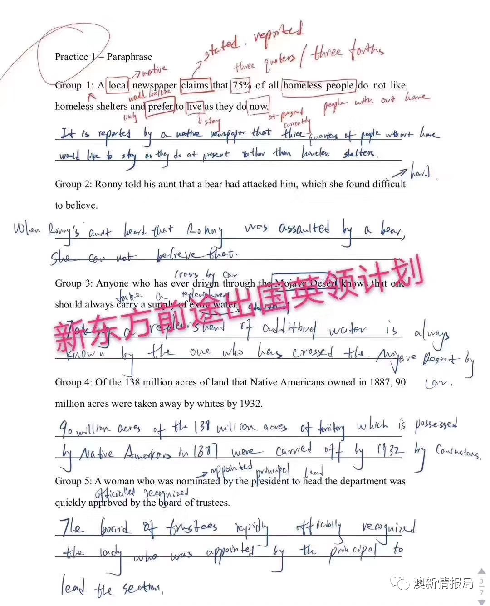 stated. reported
three quarters / three fourths
Practice 1 – Paraphrase
native
Group 1: A local newspaper claims that 75% of all homeless people do not like
would like to
homeless shelters and prefer to live as they do now.
stay
at present
currently
people without home
It is reported by a native newspaper that three quarters of people without home
would like to stay as they do at present rather than homeless shelters.
hard
Group 2: Ronny told his aunt that a bear had attacked him, which she found difficult
to believe.
When Ronny's aunt heard that Ronny was assaulted by a bear,
she can not believe that.
cross by car
Group 3: Anyone who has ever driven through the Mojave Desert knows that one
should always carry a supply of extra water.
新东方前途出国英领计划
of additional water is always
known by the one who has crossed the Mojave Desert by
car.
Group 4: Of the 138 million acres of land that Native Americans owned in 1887, 90
million acres were taken away by whites by 1932.
90 million acres of the 138 million acres of territory which is possessed
by Native Americans in 1887 were carried off by 1932 by
appointed principal lead
Group 5: A woman who was nominated by the president to head the department was
officially recognized
quickly approved by the board of trustees.
The board of trustees rapidly officially recognized
the lady who was appointed by the principal to
lead the section.
澳新情报局